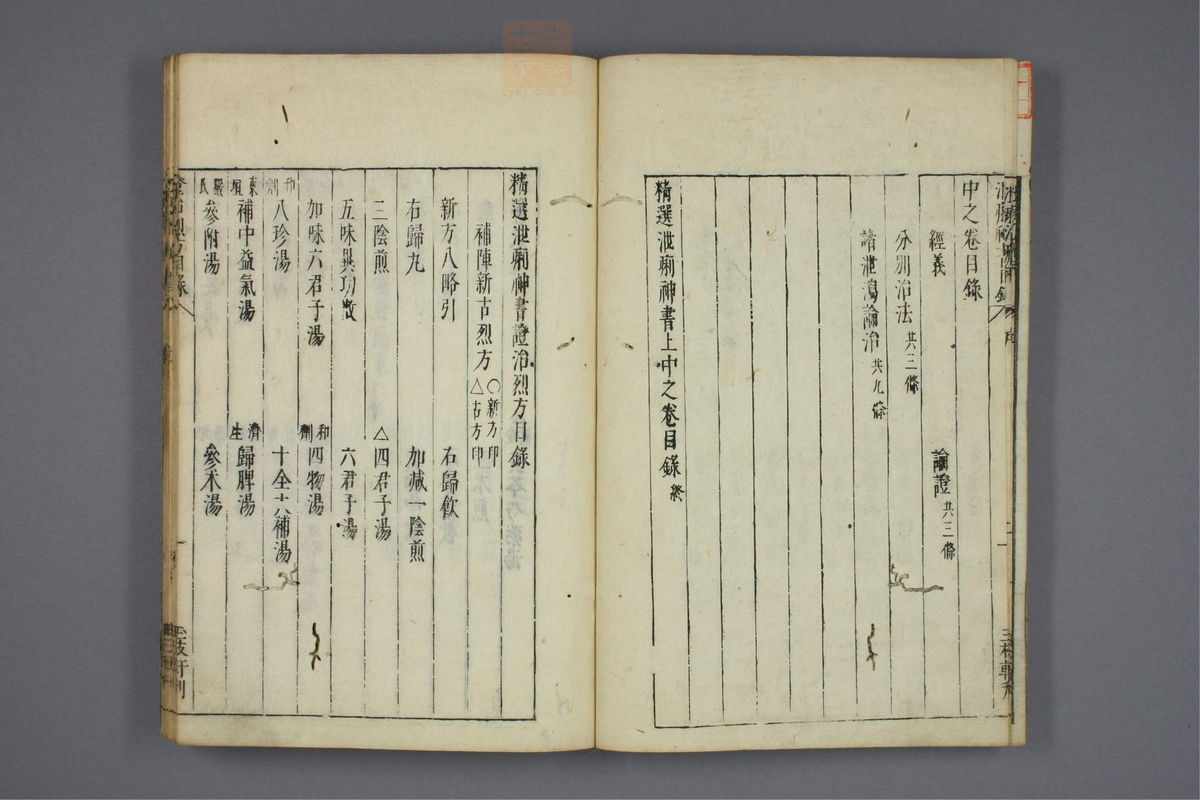 中之卷目錄
經義
論證 共三條
分別治法 共三條
諸泄瀉論治 共九條
精選泄痢神書上中之卷目錄 終
精選泄痢神書證治烈方目錄
補陣新古烈方 〇新方印 △古方印
新方八略引
右歸飲
右歸丸
加减一陰煎
三陰煎
△四君子湯
五味異功散
六君子湯
加味六君子湯
和劑 四物湯
和劑 八珍湯
十全大補湯
東垣 補中益氣湯
濟生 歸脾湯
嚴氏 參附湯
參术湯